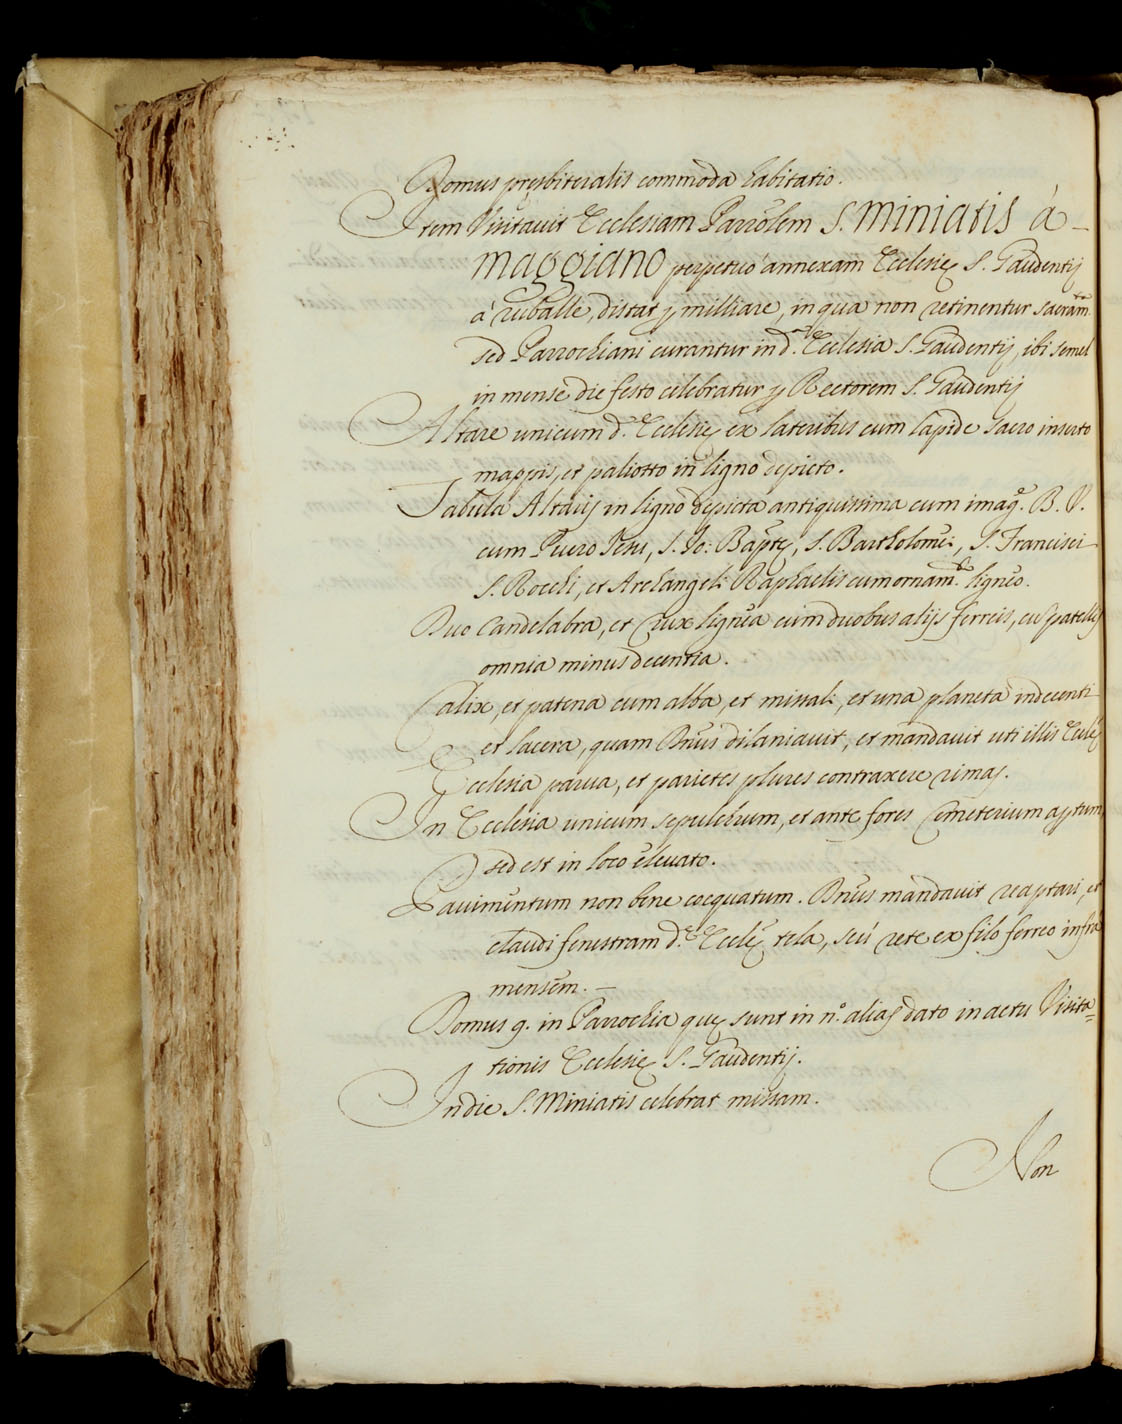 Domus pręsbiteralis commoda habitatio.
Item Visitauit Ecclesiam Parrōlem S. Miniatis à
Maggiano perpetuo annexam Ecclesię S. Gaudentij
à ruballe, distat milliare, in qua non retinentur sacram.ta
sed Parrochiani curantur in d.a Ecclesia S. Gaudentij, ibi semel
in mense die festo celebratur Rectorem S. Gaudentij
Altare unicum d. Ecclesię ex lateribus cum lapide sacro inserto
mappis, et paliotto in ligno depicto.
Tabula Altaris in ligno depicta antiquissima cum imag.e B. V.
cum Puero Jesu, S. Jo: Baptę, S. Bartholomei, S. Francisci
S. Rocchi, et Archangeli Raphaelis cum ornam.to ligneo.
Duo Candelabra, et Crux lignea cum duobus alijs ferreis, cū patellis
omnia minus decentia.
Calix, et patena cum alba, et missali, et una planeta indecenti
et lacera, quam Dnus dilaniauit, et mandauit uti illis Ecclę
Ecclesia parua, et parietes plures contraxere rimas.
In Ecclesia unicum sepulchrum, et ante fores Cemeterium aptum,
sed est in loco eleuato.
Pauimentum non bene coequatum. Dnus mandauit reaptari, et
claudi fenestram d.ę Ecclę tela, seù rete ex filo ferreo infra
mensem. —
Domus 9. in Parrochia quę sunt in n.o alias dato in actu Visita=
tionis Ecclesię S. Gaudentij.
In die S. Miniatis celebrat missam.
Non